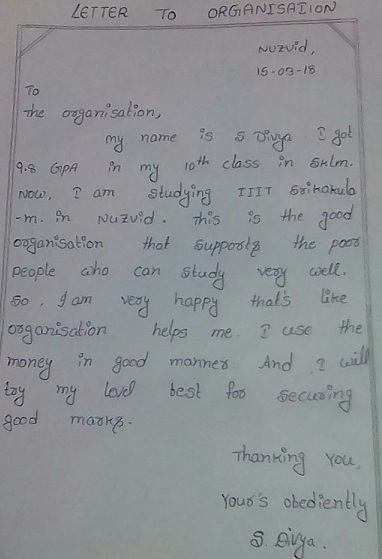 LETTER TO ORGANISATION
Nuzvid,
15-03-18
To
the organisation,
my name is S Divya I got
9.8 GPA in my 10th class in Sklm.
Now, I am studying IIIT Srikakula
-m. in Nuzvid. this is the good
organisation that supports the poor
people who can study very well.
So, I am very happy that's like
organisation helps me. I use the
money in good manner And I will
try my level best for securing
good marks.
Thanking you,
Your's obediently
S. Divya.